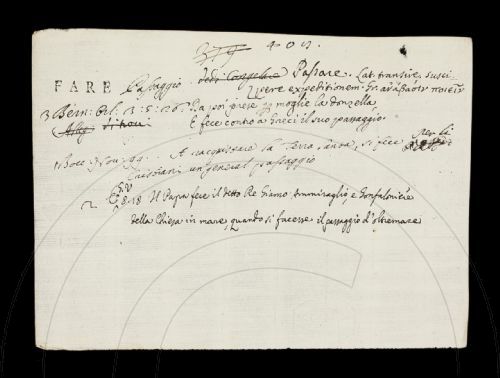 379 405.
FARE Passaggio. Vedi Passare. Lat. transire, susci-
pere expeditionem. Gr. διαβαίνειν ποιεῖν
3 Bern: Orl. 3. 5. 26. Da poi prese per moglie la donzella
E fece conto a Greci il suo passaggio.
1 Bocc. Nov. 99. A racquistare la Terra santa, si fece per li
Cristiani un general passaggio
G. V.
2 8. 18 Il Papa fece il detto Re Giamo ammiraglio, e Gonfaloniere
della Chiesa in mare, quando si facesse il passaggio d'oltremare